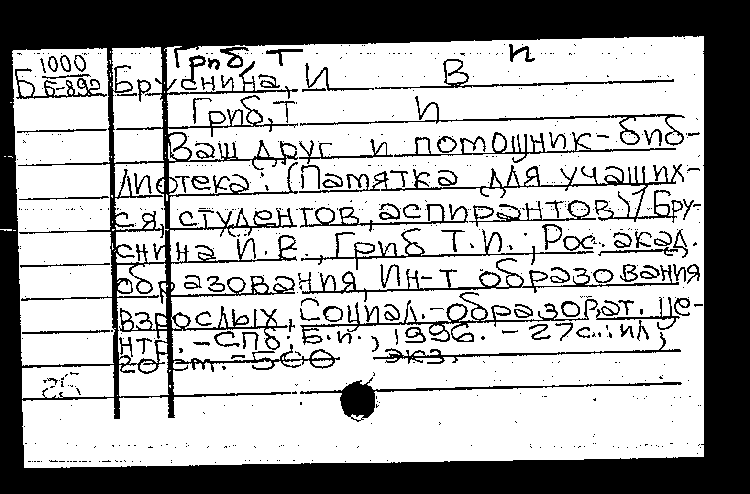 Гриб, Т И
1000
Б Б-892 Бруснина, И В
Гриб, Т И
Ваш друг и помощник - биб-
лиотека : (Памятка для учащих-
ся, студентов, аспирантов) / Бру-
снина И. В., Гриб Т. И. ; Рос. акад.
образования, Ин-т образования
взрослых, Социал.-образоват. це-
нтр. - СПб : Б.и., 1996. - 27 с. : ил ;
20 cm. - 500 экз.
25